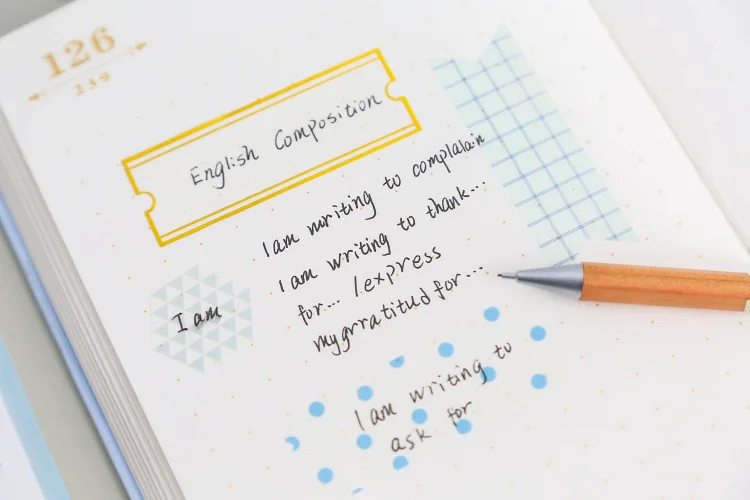 126
239
English Composition
I am mriting to complalain
I am writing to thank...
for... /express
mygrratitud for...
I am
I am writing to
ask for